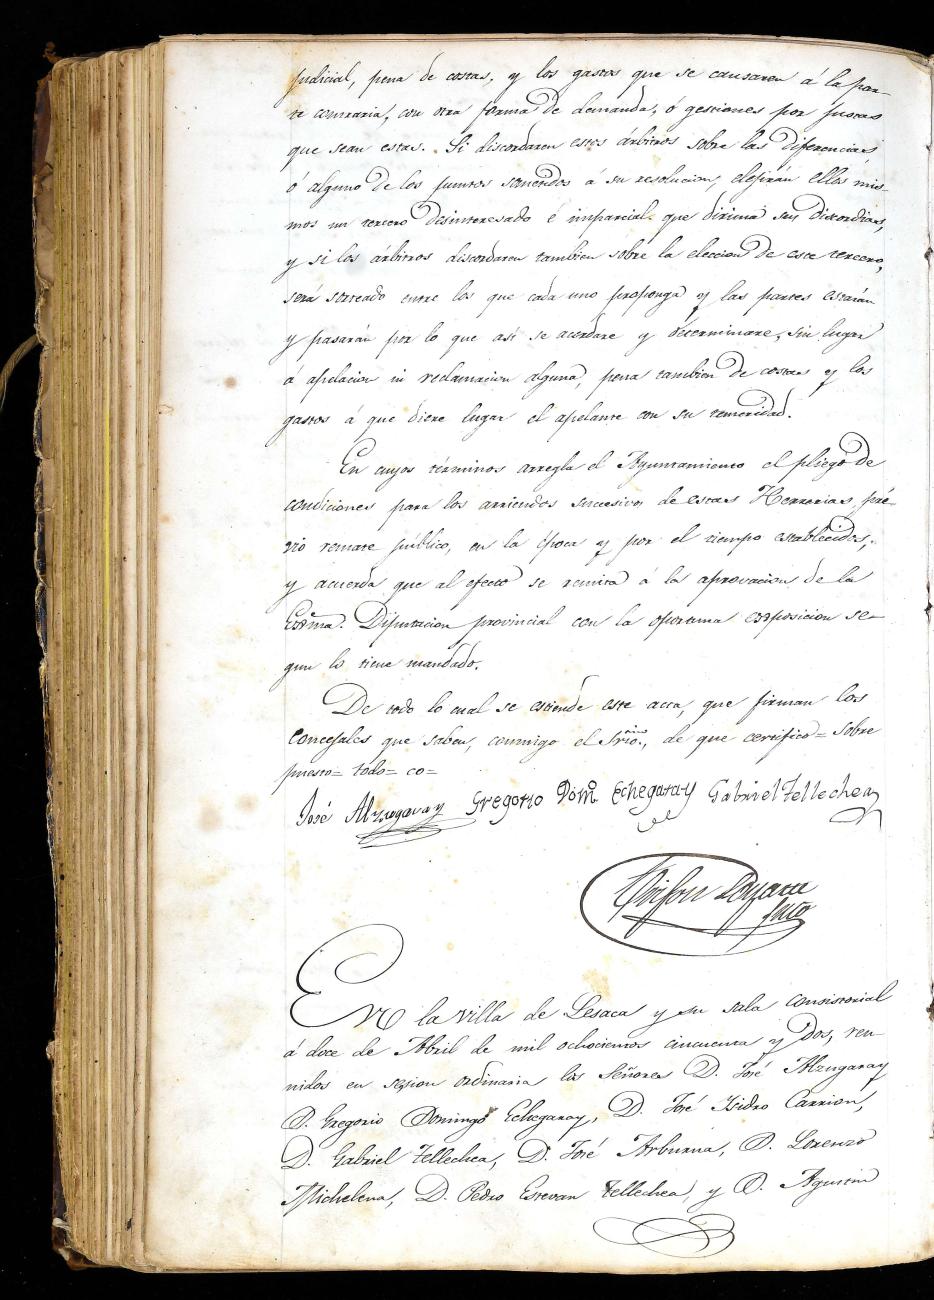 judicial, pena de costas, y los gastos que se causaren á la par-
te contraria, con otra forma de demanda, ó gestiones por justas
que sean estas. Si discordaren estos árbitros sobre las diferencias
ó alguno de los puntos sometidos á su resolucion, elejirán ellos mis-
mos un tercero desinteresado é imparcial que dirima sus discordias,
y si los árbitros discordaren tambien sobre la eleccion de este tercero,
será sorteado entre los que cada uno proponga y las partes estarán
y pasarán por lo que asi se acordare y determinare, sin lugar
á apelacion ni reclamacion alguna, pena tambien de costas y los
gastos á que diere lugar el apelante con su temeridad.
En cuyos términos arregla el Ayuntamiento el pliego de
condiciones para los arriendos sucesivos de estas Herrerias, pré-
vio remate público, en la época y por el tiempo establecidos,
y acuerda que al efecto se remita á la aprovacion de la
Escma. Diputacion provincial con la oportuna esposicion se-
gun lo tiene mandado.
De todo lo cual se estiende este acta, que firman los
Concejales que saben, conmigo el Srio., de que certifico= Sobre
puesto= todo= co=
José Alzugaray Gregorio Domº Echegaray Gabriel Tellechea
Srio
En la Villa de Lesaca y su sala consistorial
á doce de Abril de mil ochocientos cincuenta y dos, reu-
nidos en sesion ordinaria los Señores D. José Alzugaray
D. Gregorio Domingo Echegaray, D. José Isidro Carrion,
D. Gabriel Tellechea, D. José Arburua, D. Lorenzo
Michelena, D. Pedro Estevan Tellechea, y D. Agustin